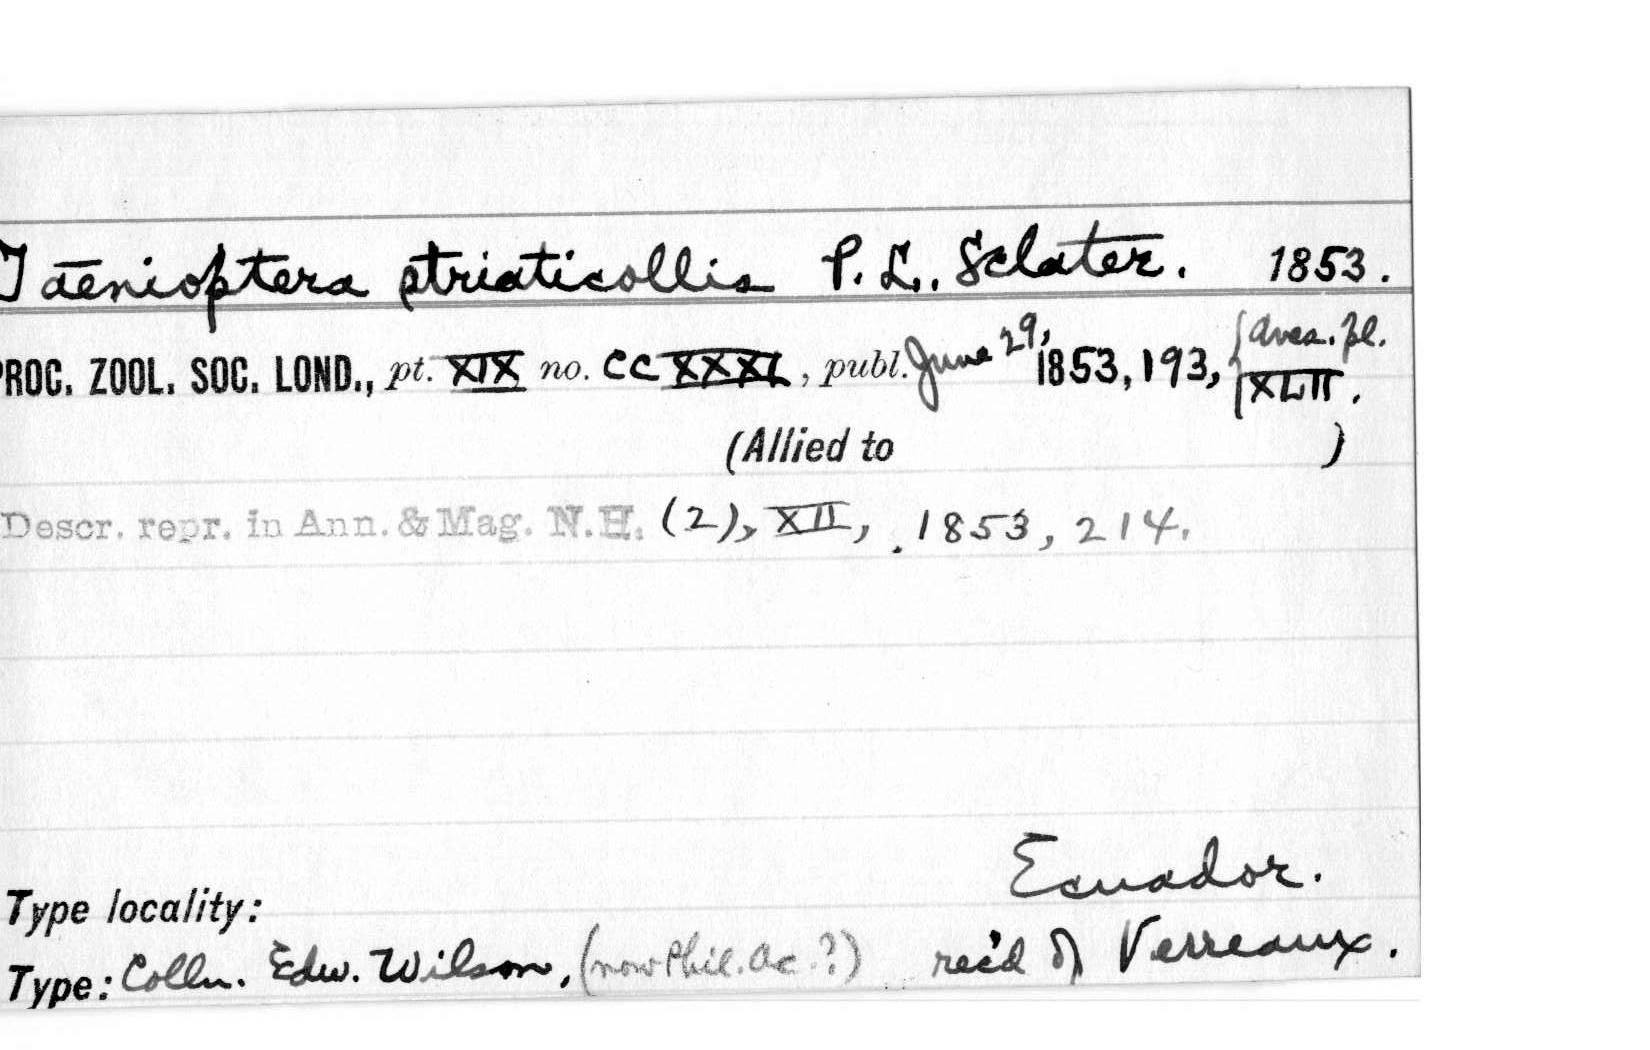 Taenioptera striaticollis P. L. Sclater. 1853.
PROC. ZOOL. SOC. LOND., pt. XIX no. CCXXXI, publ. June 29, 1853, 193, {Aves. pl. XLII.
(Allied to )
Descr. repr. in Ann. & Mag. N.H. (2), XII, . 1853, 214.
Ecuador.
Type locality:
Type: Colln. Edw. Wilson, (now Phil. Ac.?) rec'd of Verreaux.